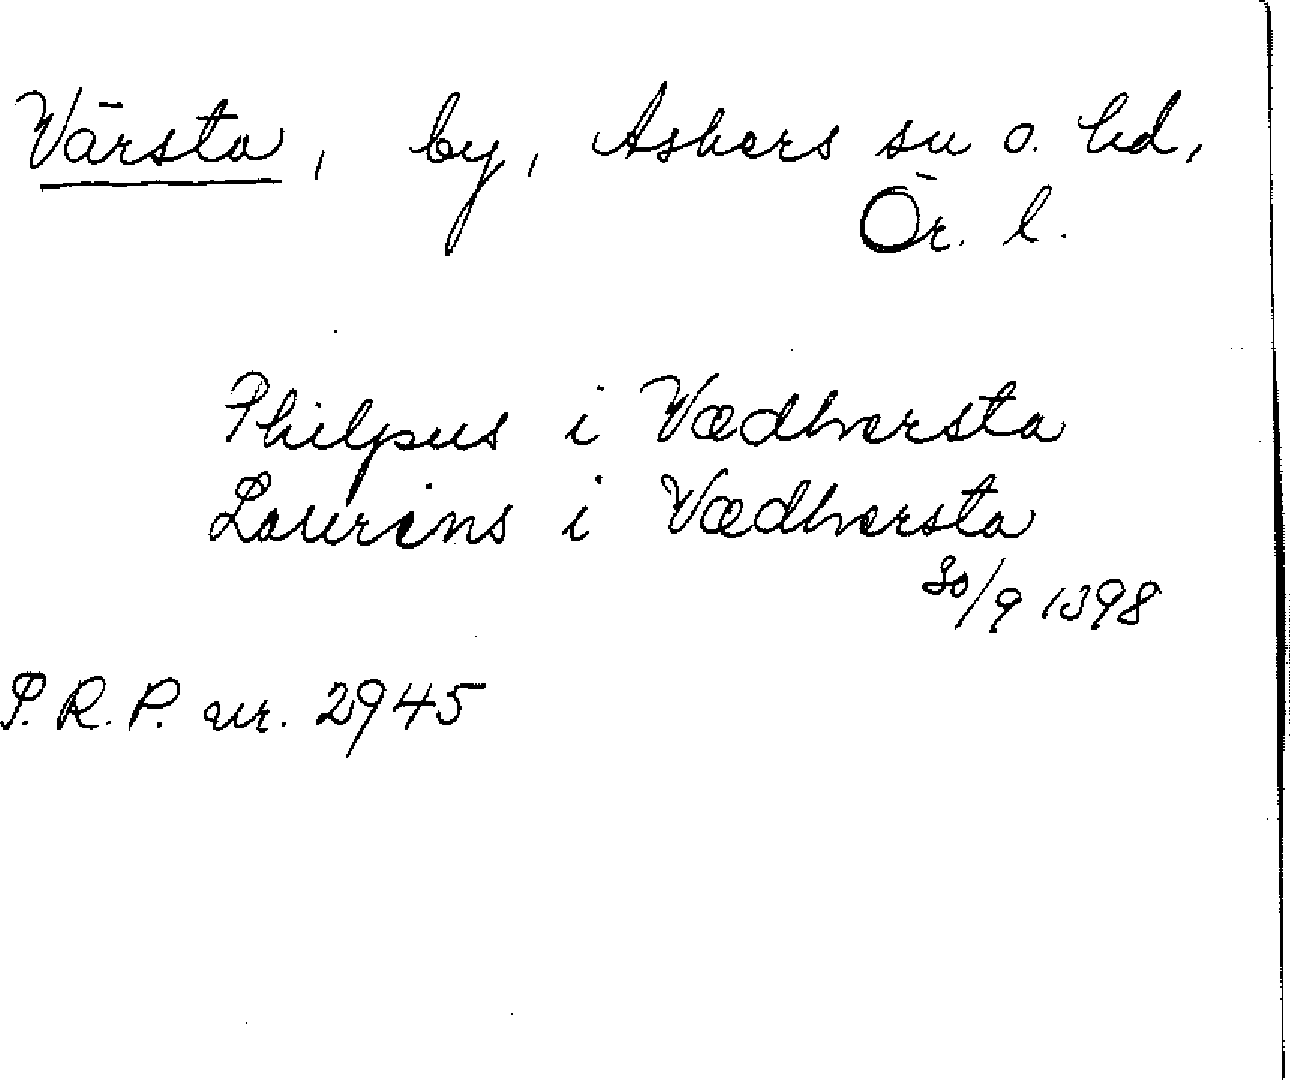 Värsta, by, Askers sn o. hd,
Ör. l.
Philpus i Vædhersta
Laurens i Vædhersta
30/9 1398
P.R.P. nr. 2945